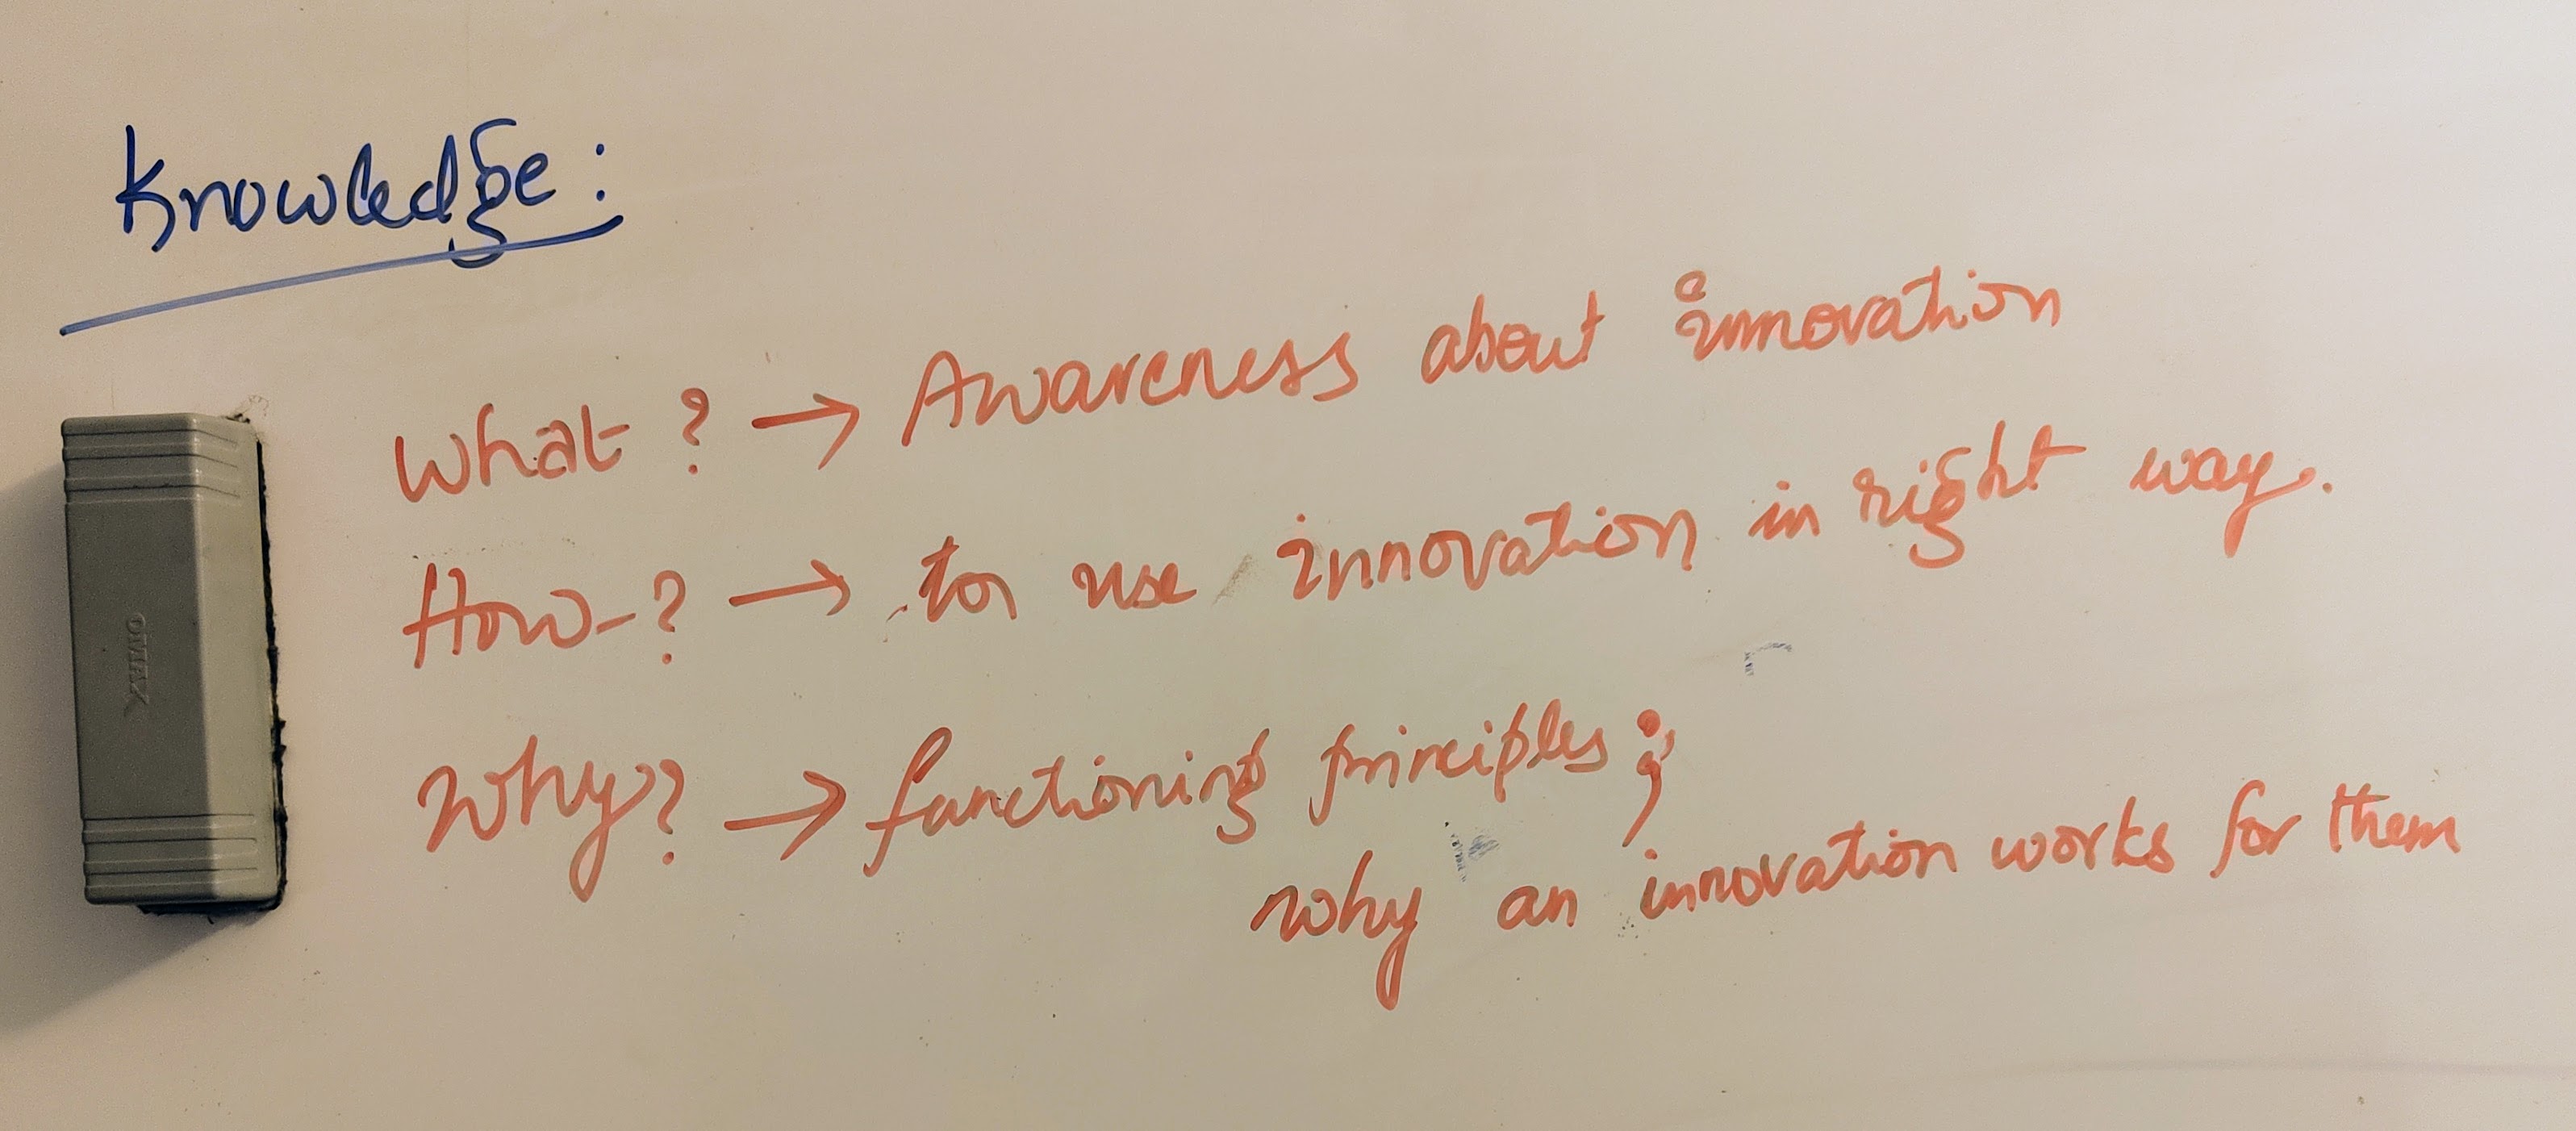 Knowledge:
What? → Awareness about innovation
How-? → to use innovation in right way.
Why? → functioning principles;
why an innovation works for them
OMAX